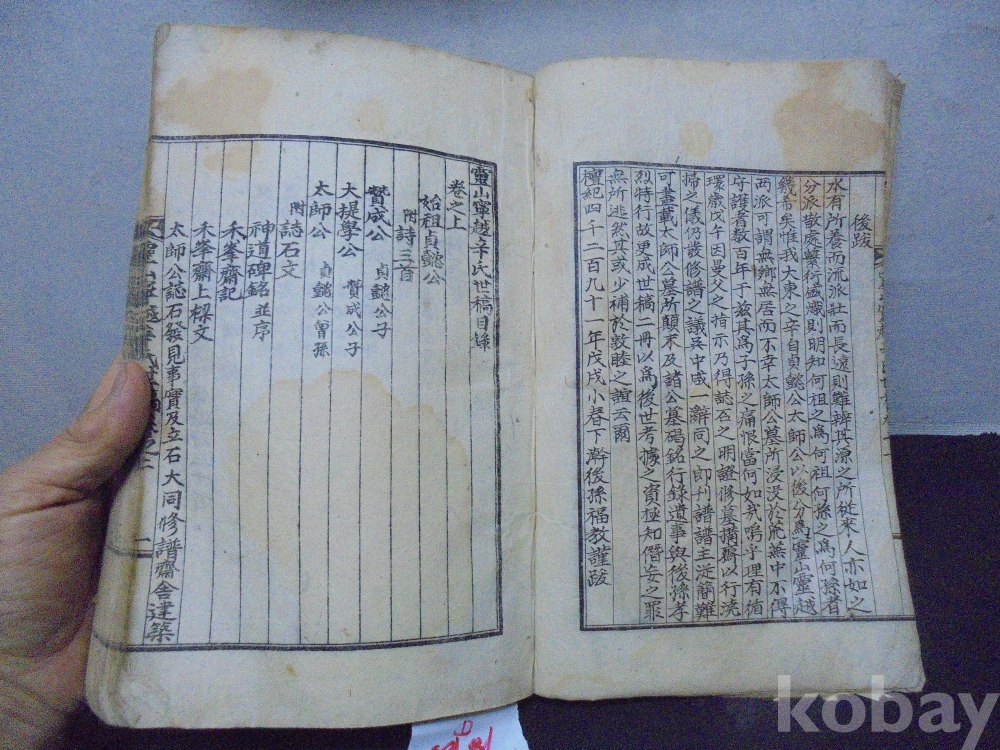 後跋
水有所養而流派壯而長遠則難辨其源之所從來人亦如之
分派散處繁衍歲則明知何祖之爲何祖何孫之爲何孫者
幾希矣惟我大東之辛自貞懿公太師公以後分爲靈山靈越
兩派可謂無鄕無居而不幸太師公墓所浸沒於荒蕪中不得
守護者數百年于玆其爲子孫之痛恨當何如哉嗚乎理有循
環歲戊午因曼父之指示乃得誌石之明證修墓搆齋以行洗
掃之儀仍發修譜之議矣中咸一辭同之卽刊譜譜主從簡難
可盡載太師公墓所顚末及諸公墓碣銘行錄遺事與後孫孝
烈特行故更成世稿二冊以爲後世考據之資極知僭妄之罪
無所逃然其或少補於敦睦之誼云爾
檀紀四千二百九十一年戊戌小春下澣後孫福敎謹跋
靈山寧越辛氏世稿目錄
卷之上
始祖貞懿公
附詩三首
贊成公 貞懿公子
大提學公 贊成公子
太師公 貞懿公曾孫
附誌石文
神道碑銘並序
禾峯齋記
禾峯齋上樑文
太師公誌石發見事實及立石大同修譜齋舍建築
一
kobay